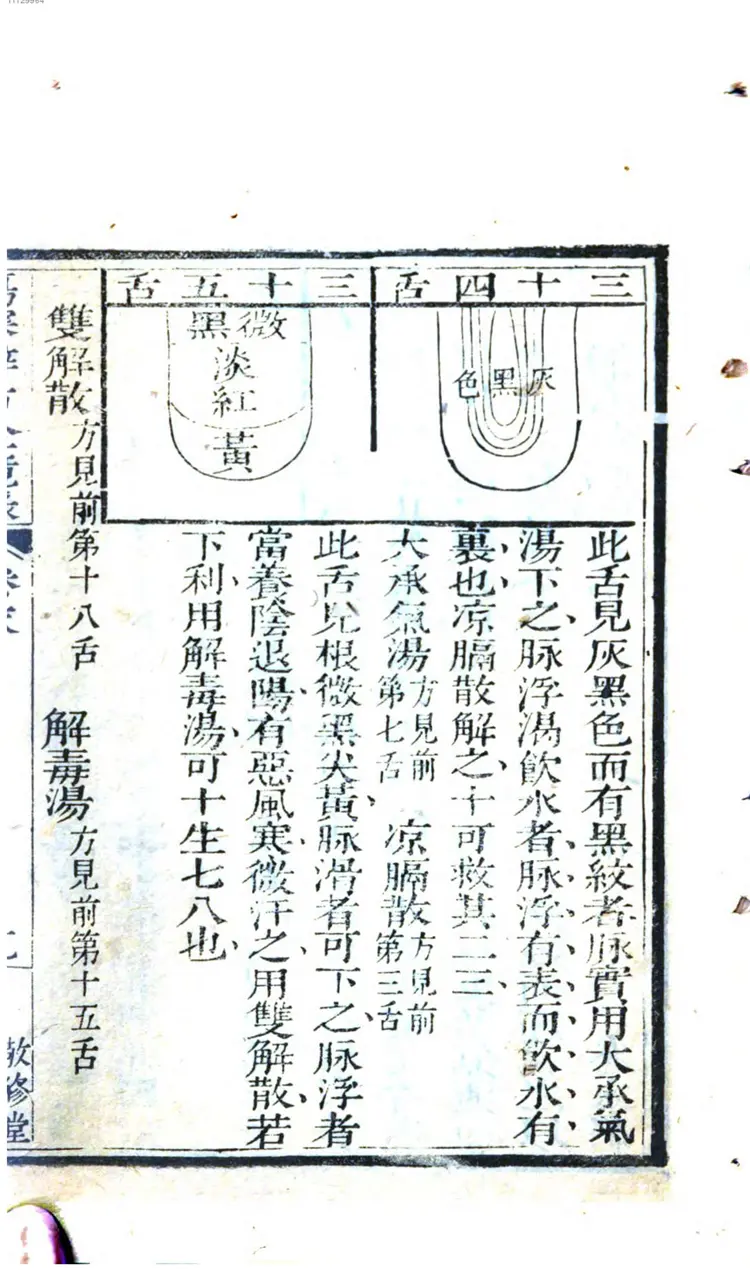 11129964
三十四舌
灰黑色
此舌見灰黑色而有黑紋者脉實用大承氣
湯下之脉浮渴飲水者脉浮有表而飲水有
裏也凉膈散解之十可救其二三
大承氣湯方見前第七舌 凉膈散方見前第三舌
三十五舌
微黑
淡紅
黃
此舌見根微黑尖黃脉滑者可下之脉浮者
當養陰退陽有惡風寒微汗之用雙解散若
下利用解毒湯可十生七八也
雙解散方見前第十八舌 解毒湯方見前第十五舌
敬修堂